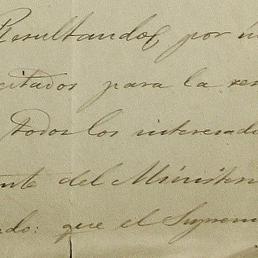 Resultando por
citados para la
todos los interesad
del Minister
que el Suprem